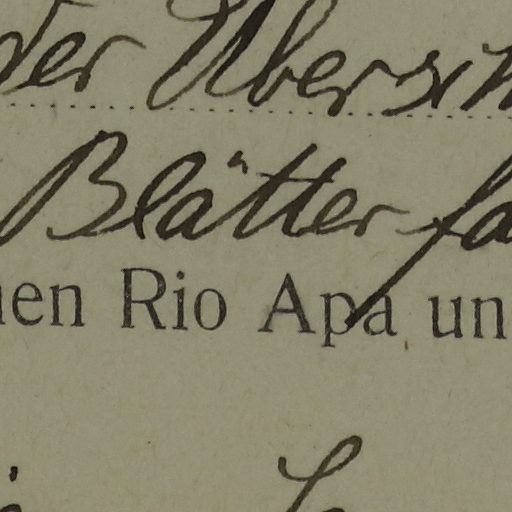 der Übersi
Blätter fa
nen Rio Apa un